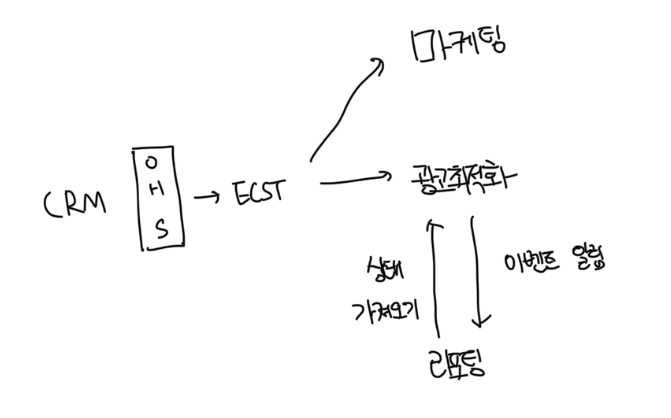 마케팅
CRM
O
H
S
ECST
광고최적화
상태
가져오기
이벤트 알림
리포팅